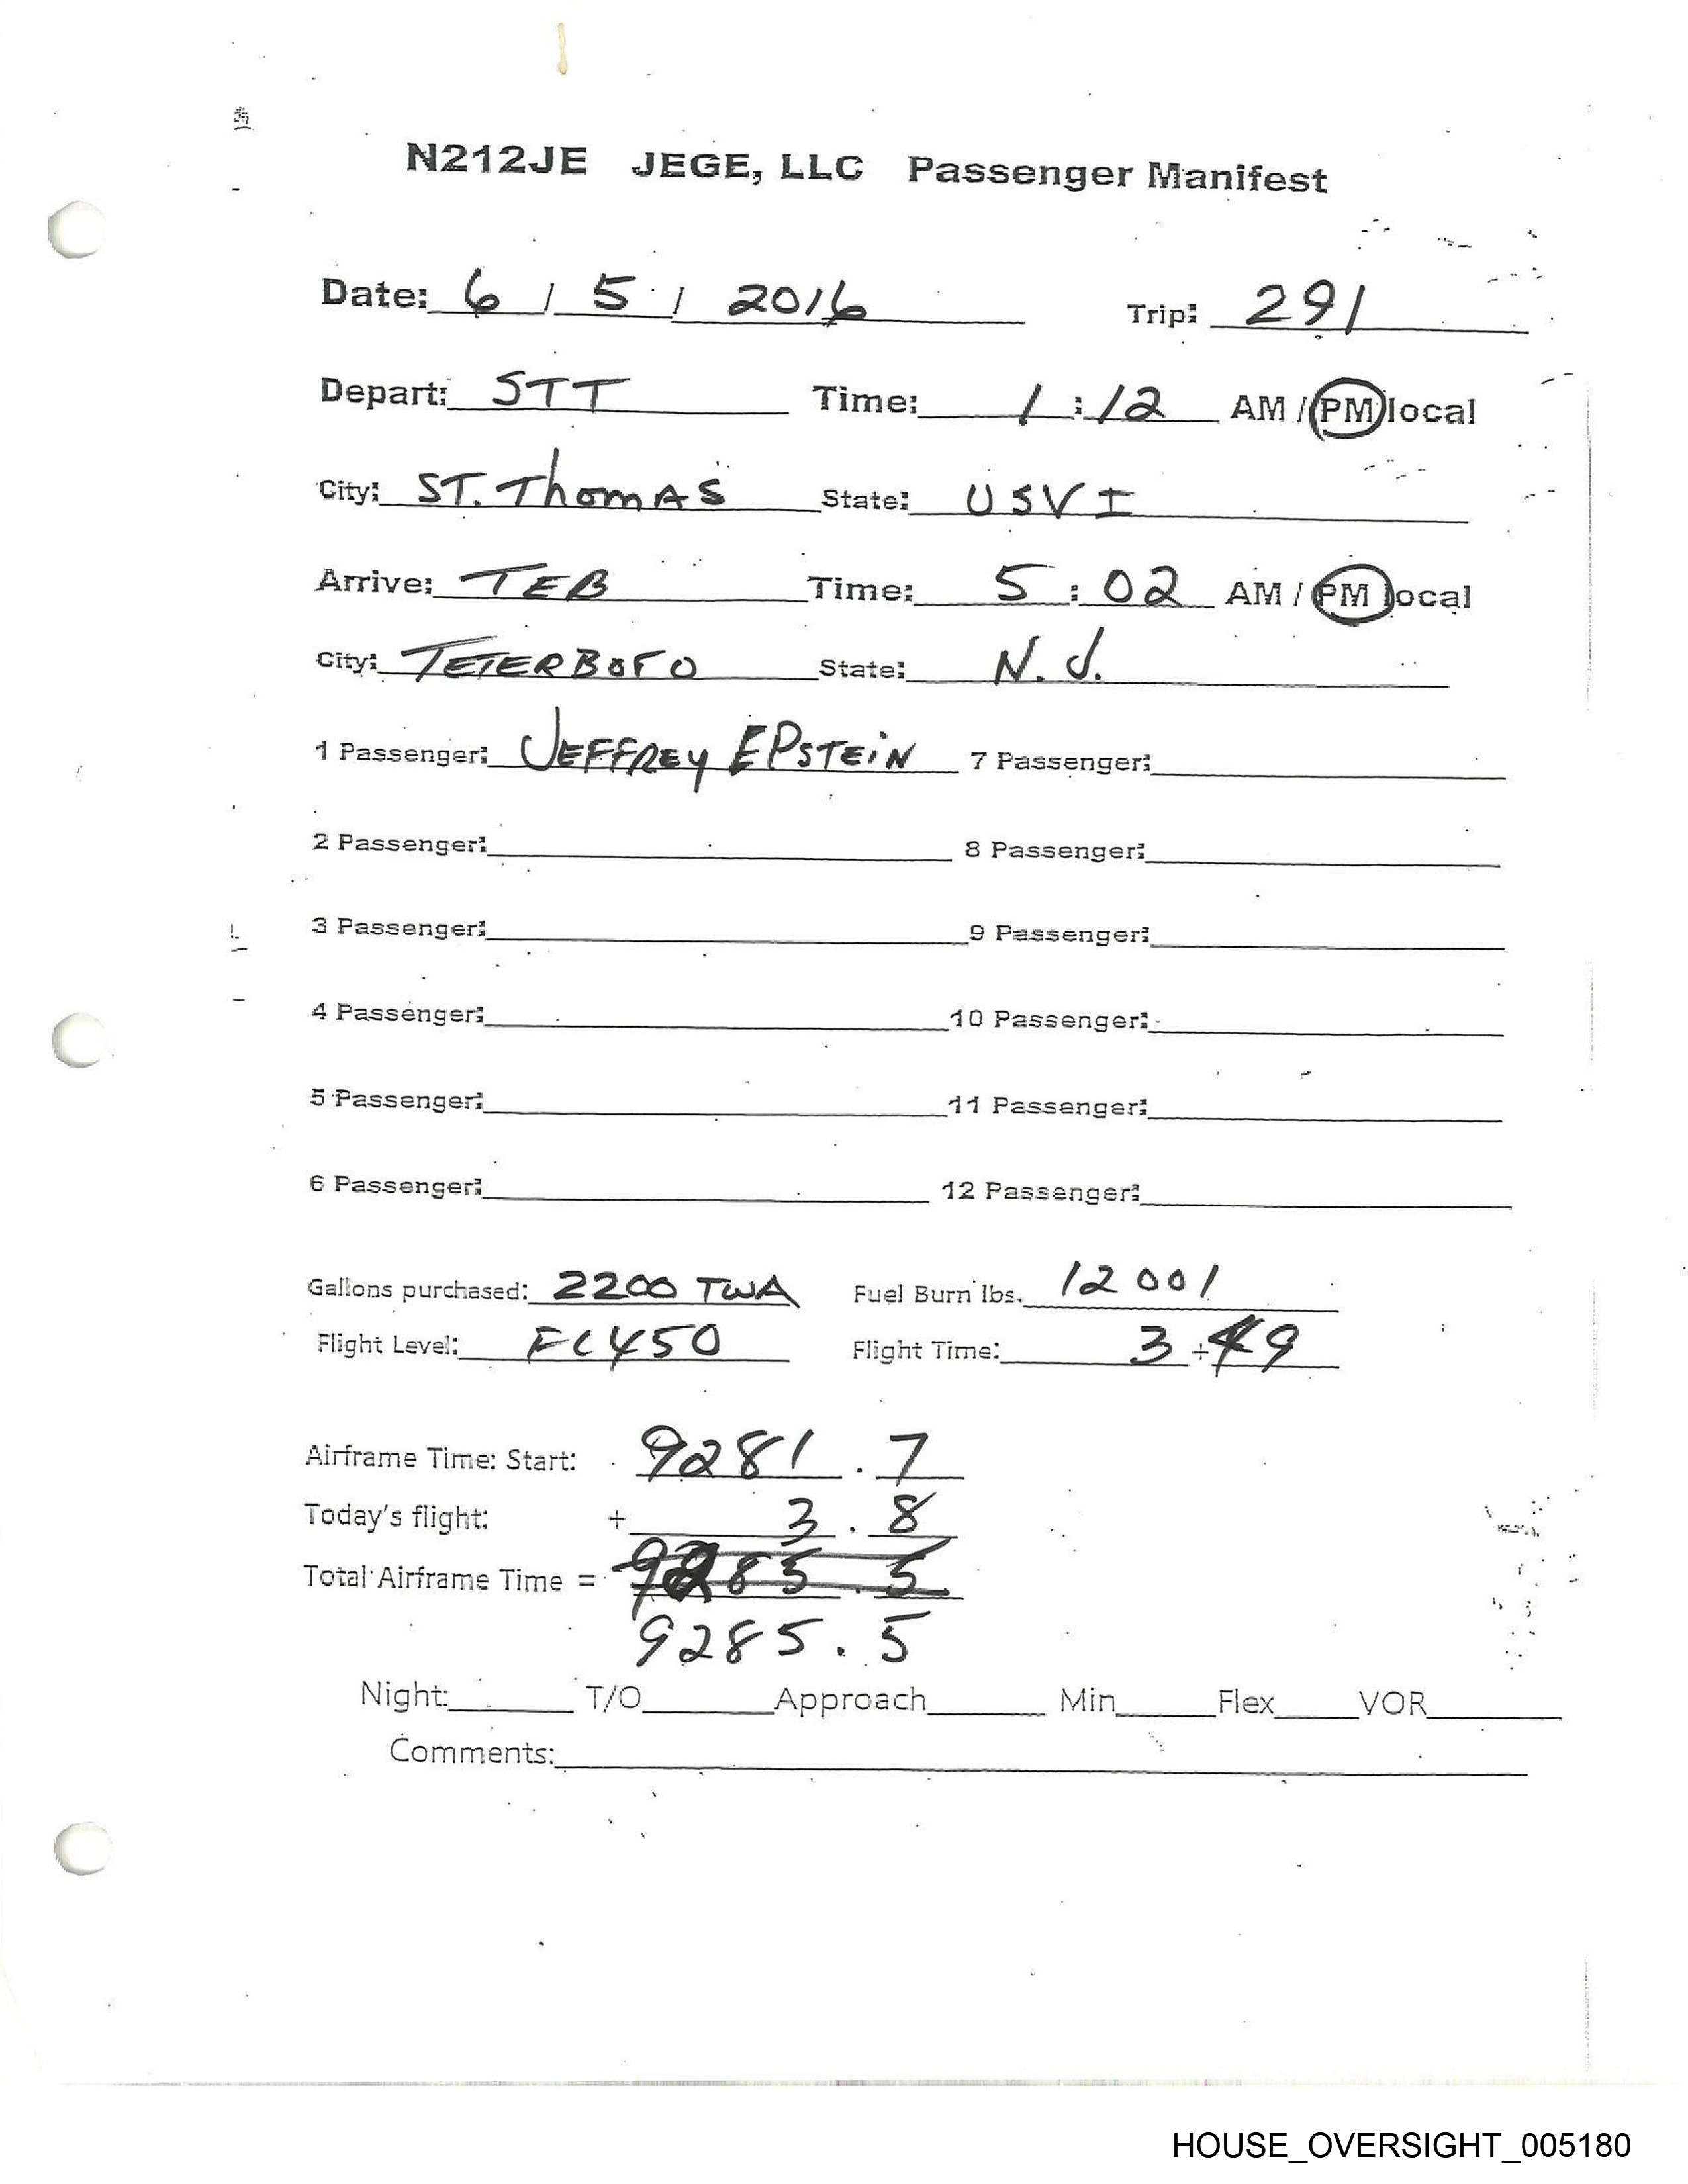 N212JE JEGE, LLC Passenger Manifest
Date: 6 / 5 / 2016 Trip: 291
Depart: STT Time: 1 : 12 AM / PM local
City: ST. ThomAS State: USVI
Arrive: TEB Time: 5 : 02 AM / PM local
City: TETERBORO State: N. J.
1 Passenger: JEFFREY EPSTEiN 7 Passenger:
2 Passenger: 8 Passenger:
3 Passenger: 9 Passenger:
4 Passenger: 10 Passenger:
5 Passenger: 11 Passenger:
6 Passenger: 12 Passenger:
Gallons purchased: 2200 TWA Fuel Burn lbs. 12 001
Flight Level: FL450 Flight Time: 3 + 49
Airframe Time: Start: 9281 . 7
Today's flight: + 3 . 8
Total Airframe Time = 9285 . 5
9285 . 5
Night: T/O Approach Min Flex VOR
Comments:
HOUSE_OVERSIGHT_005180